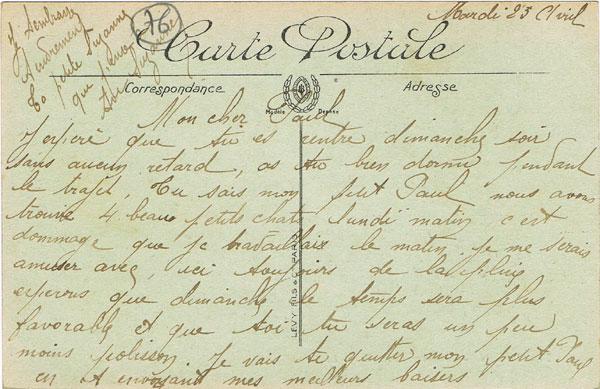 Mardi 25 Avril
Je t'embrasse
tendrement
ta petite Suzanne
qui pense
à toi Suzanne
76
Carte Postale
Correspondance
Adresse
Modèle Déposé
Mon cher Paul
J'espère que tu es rentré dimanche soir
sans aucun retard, as tu bien dormi pendant
le trajet, Tu sais mon petit Paul nous avons
trouvé 4 beaux petits chats lundi matin c'est
dommage que je travaillais le matin je me serais
amuser avec, ici toujours de la pluie
esperons que dimanche le temps sera plus
favorable et que toi tu seras un peu
moins polisson. Je vais te quitter mon petit Paul
en t envoyant mes meilleurs baisers
LEVY FILS & Cie PARIS